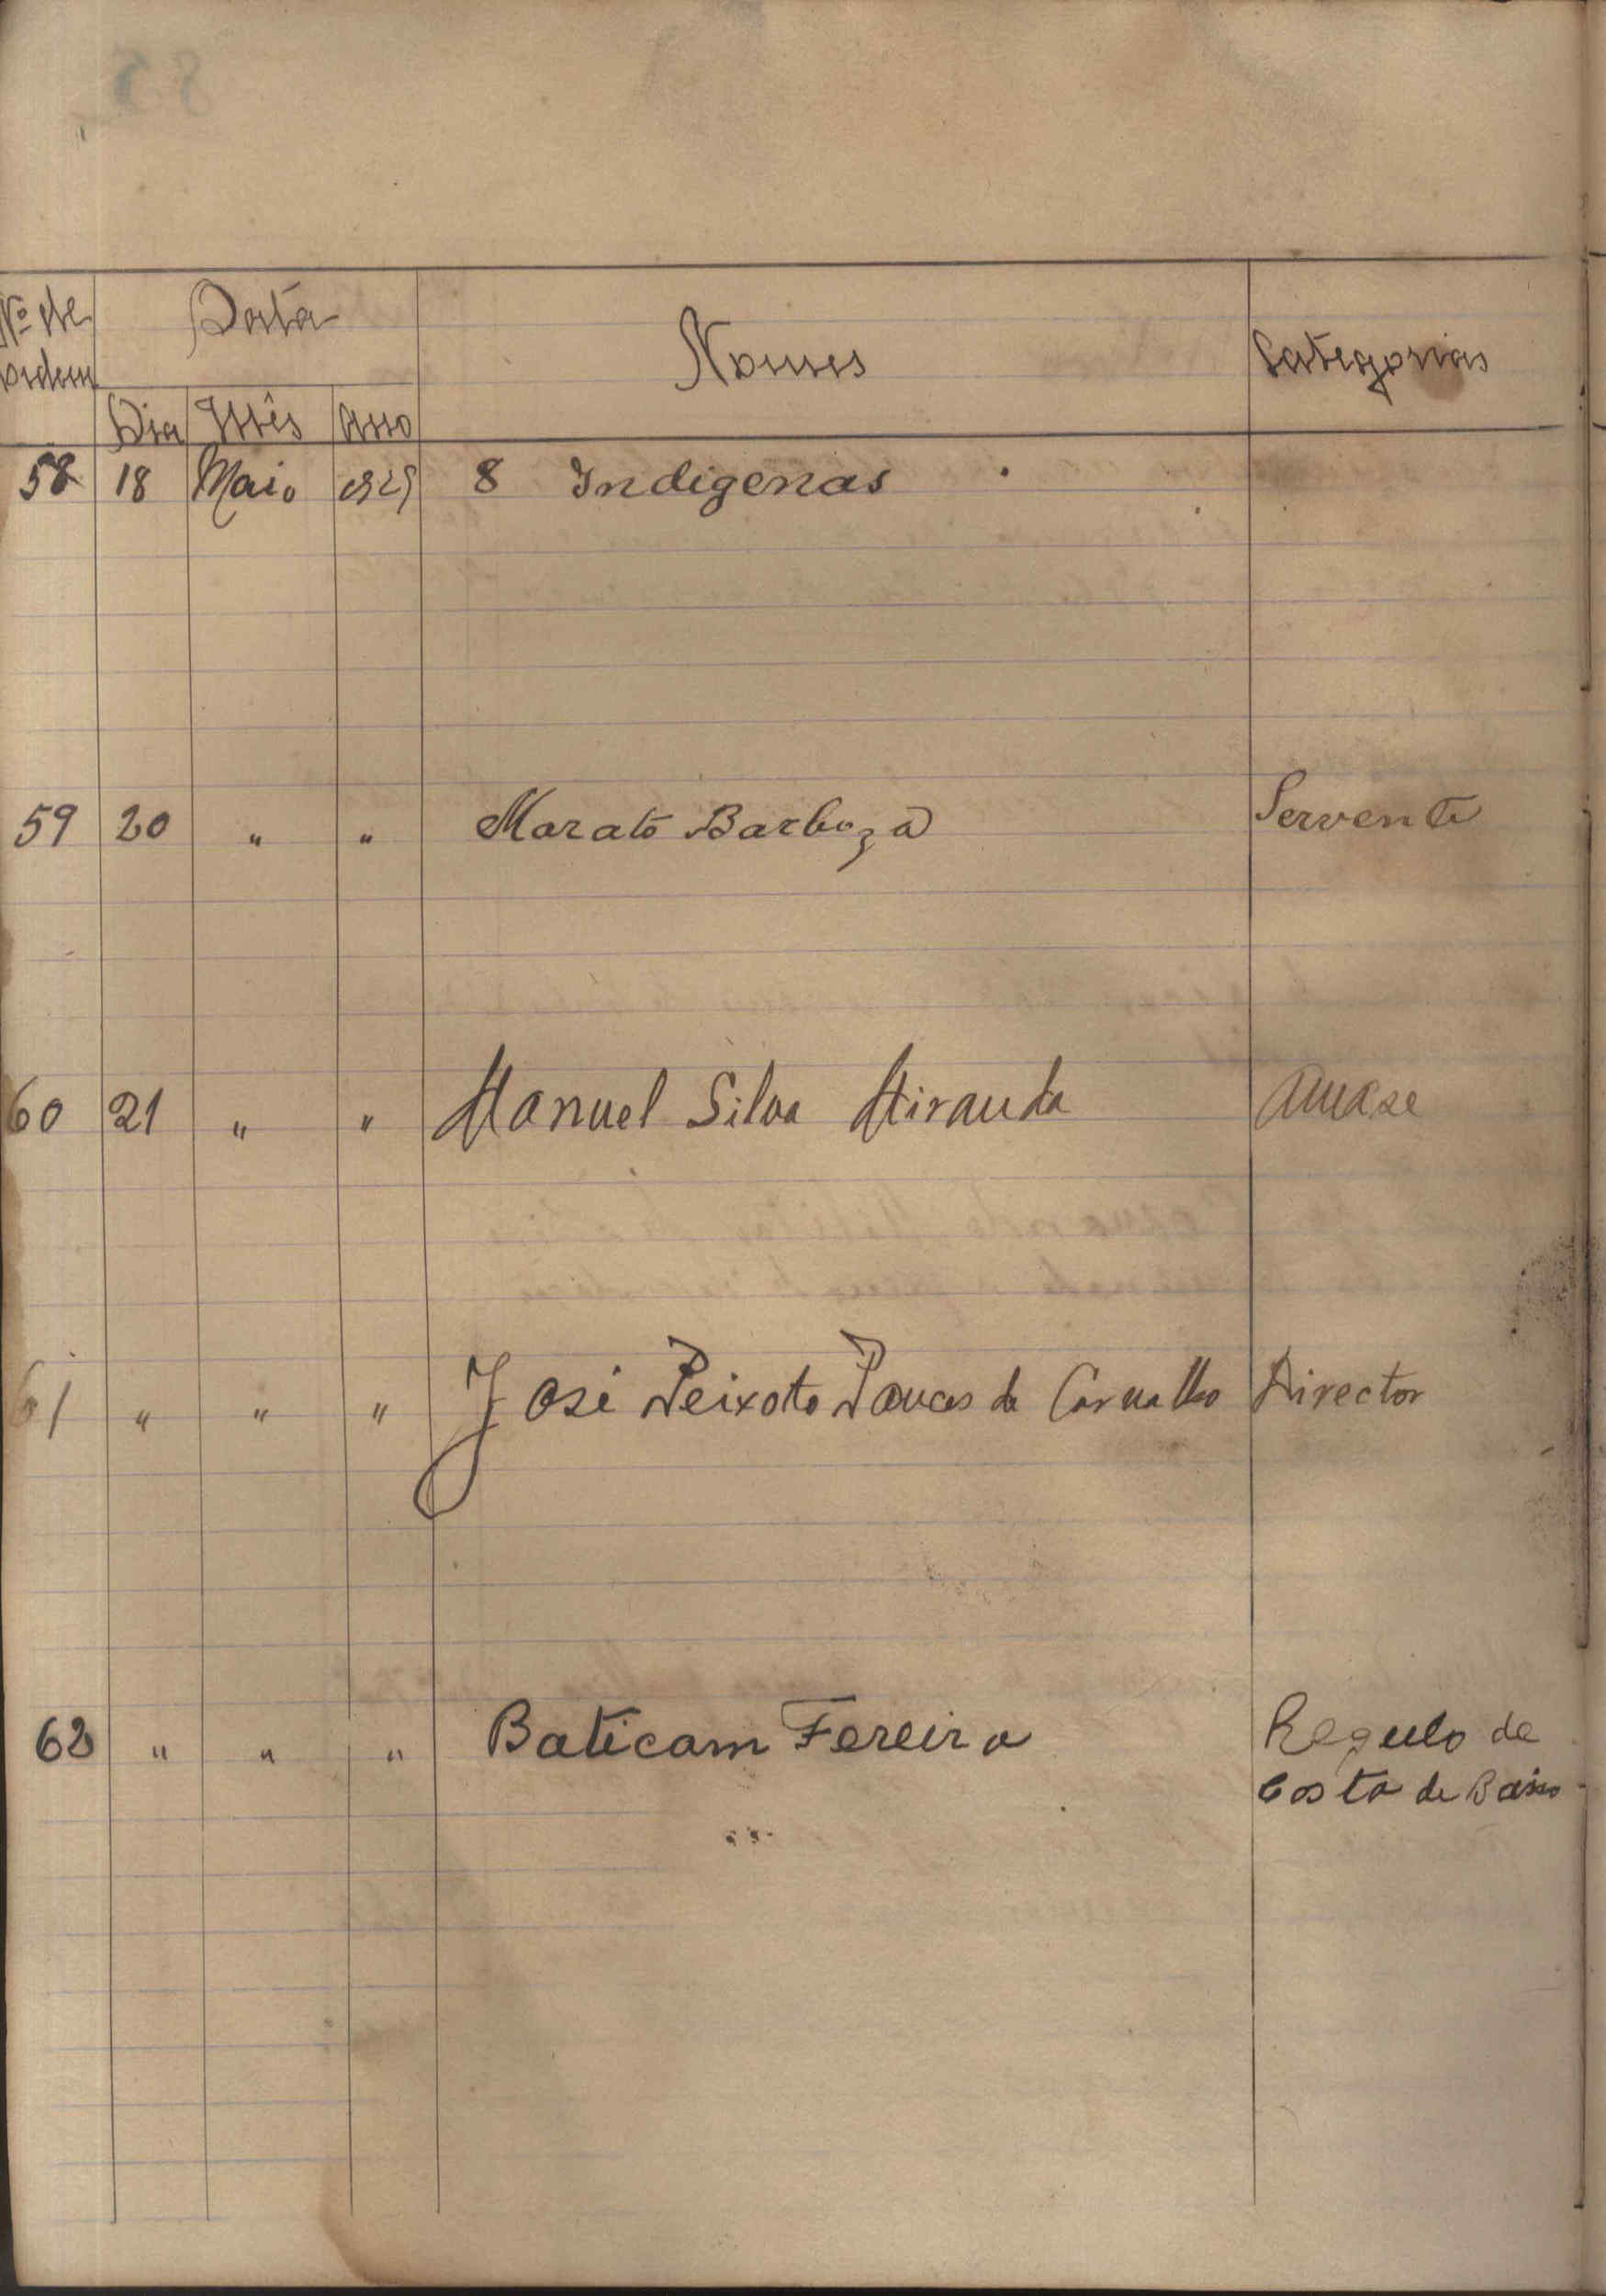 Nº de
ordem
Data
Nomes
Categorias
Dia Mês Ano
58 18 Maio 1929 8 Indigenas
59 20 " " Marato Barboza Servente
60 21 " " Manuel Silva Miranda
61 " " " José Peixoto Ponces de Carvalho Director
62 " " " Baticam Fereira Regulo de
Costa de Baixo